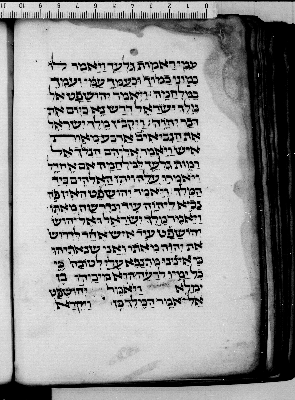 עמי רמות גלעד ויאמר לו
כמוני כמוך וכעמך עמי ועמך
במלחמה ויאמר יהושפט אל
מלך ישראל דרש נא כיום את
דבר יהוה ויקבץ מלך ישראל
את הנביאים ארבע מאות
איש ויאמר אלהם הנלך אל
רמות גלעד למלחמה אם אחדל
ויאמרו עלה ויתן האלהים ביד
המלך ויאמר יהושפט האין פה
נביא ליהוה עוד ונדרשה מאתו
ויאמר מלך ישראל אל
יהושפט עוד איש אחד לדרוש
את יהוה מאתו ואני שנאתיהו
כי איננו מתנבא עלי לטובה כי
כל ימיו לרעה הוא מיכיהו בן
ימלא ויאמר יהושפט
אל יאמר המלך כן ויקרא